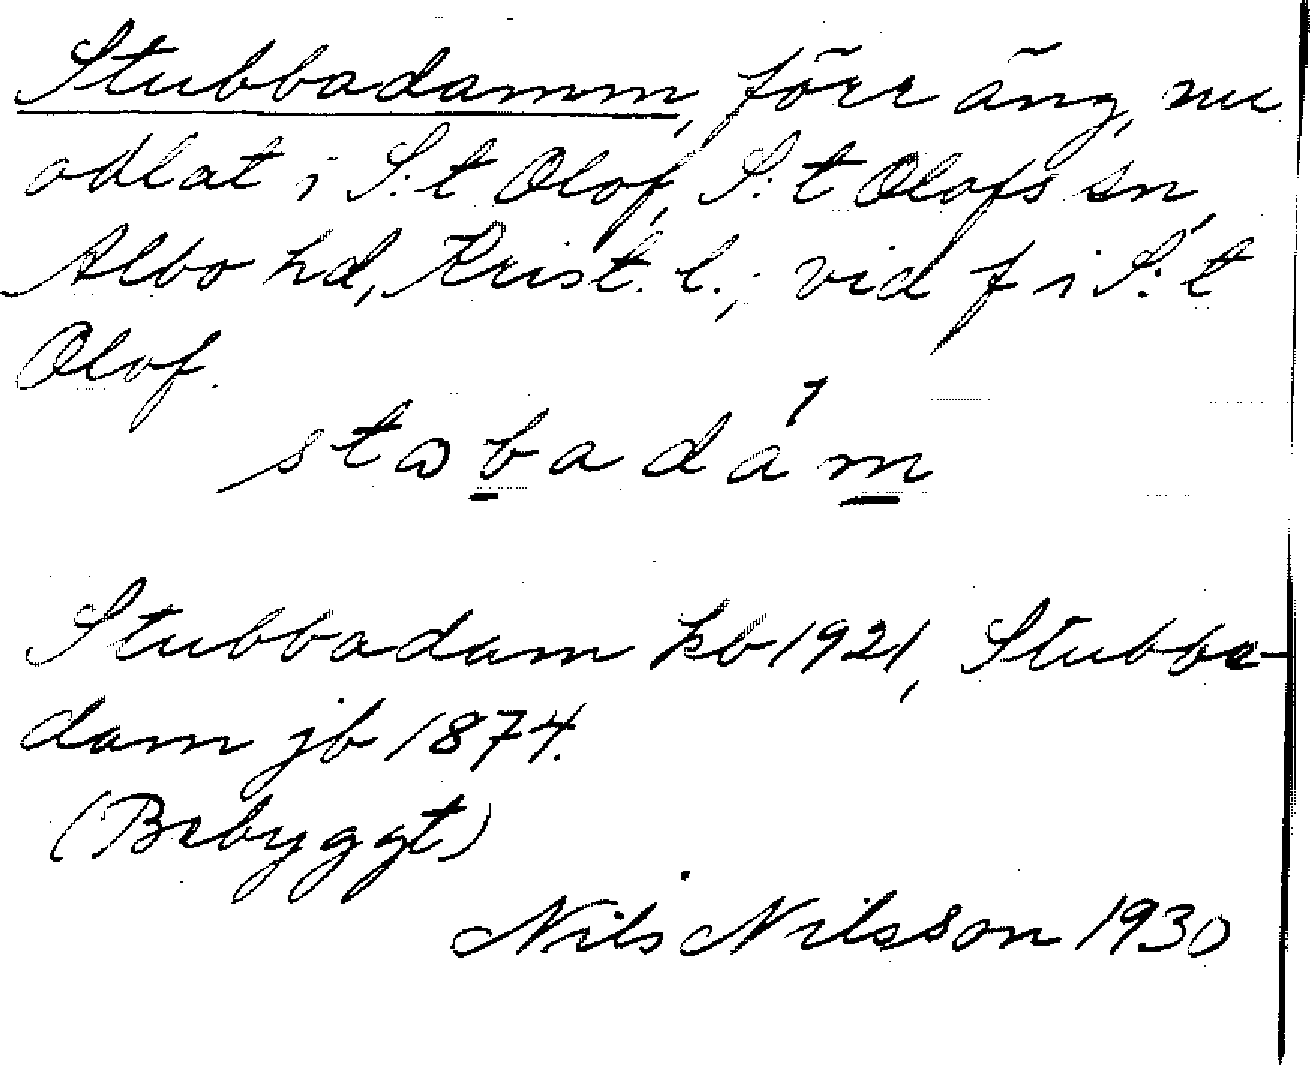 Stubbadamm, förr äng, nu
odlat i S:t Olof, S:t Olofs sn,
Albo hd, Krist. l.; vid f i S:t
Olof.
stɷbadám
Stubbadam kb 1921, Stubba-
dam jb 1874.
(Bebyggt)
Nils Nilsson 1930